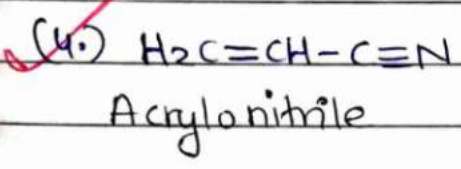 (4.) H2C=CH-C≡N
Acrylonitrile